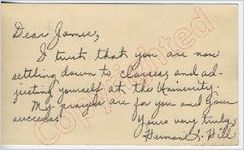 Dear James,
I trust that you are now
settling down to classes and ad-
justing yourself at the University.
My prayers are for you and your
success.
Yours very truly,
Herman L. Hill
Copyrighted